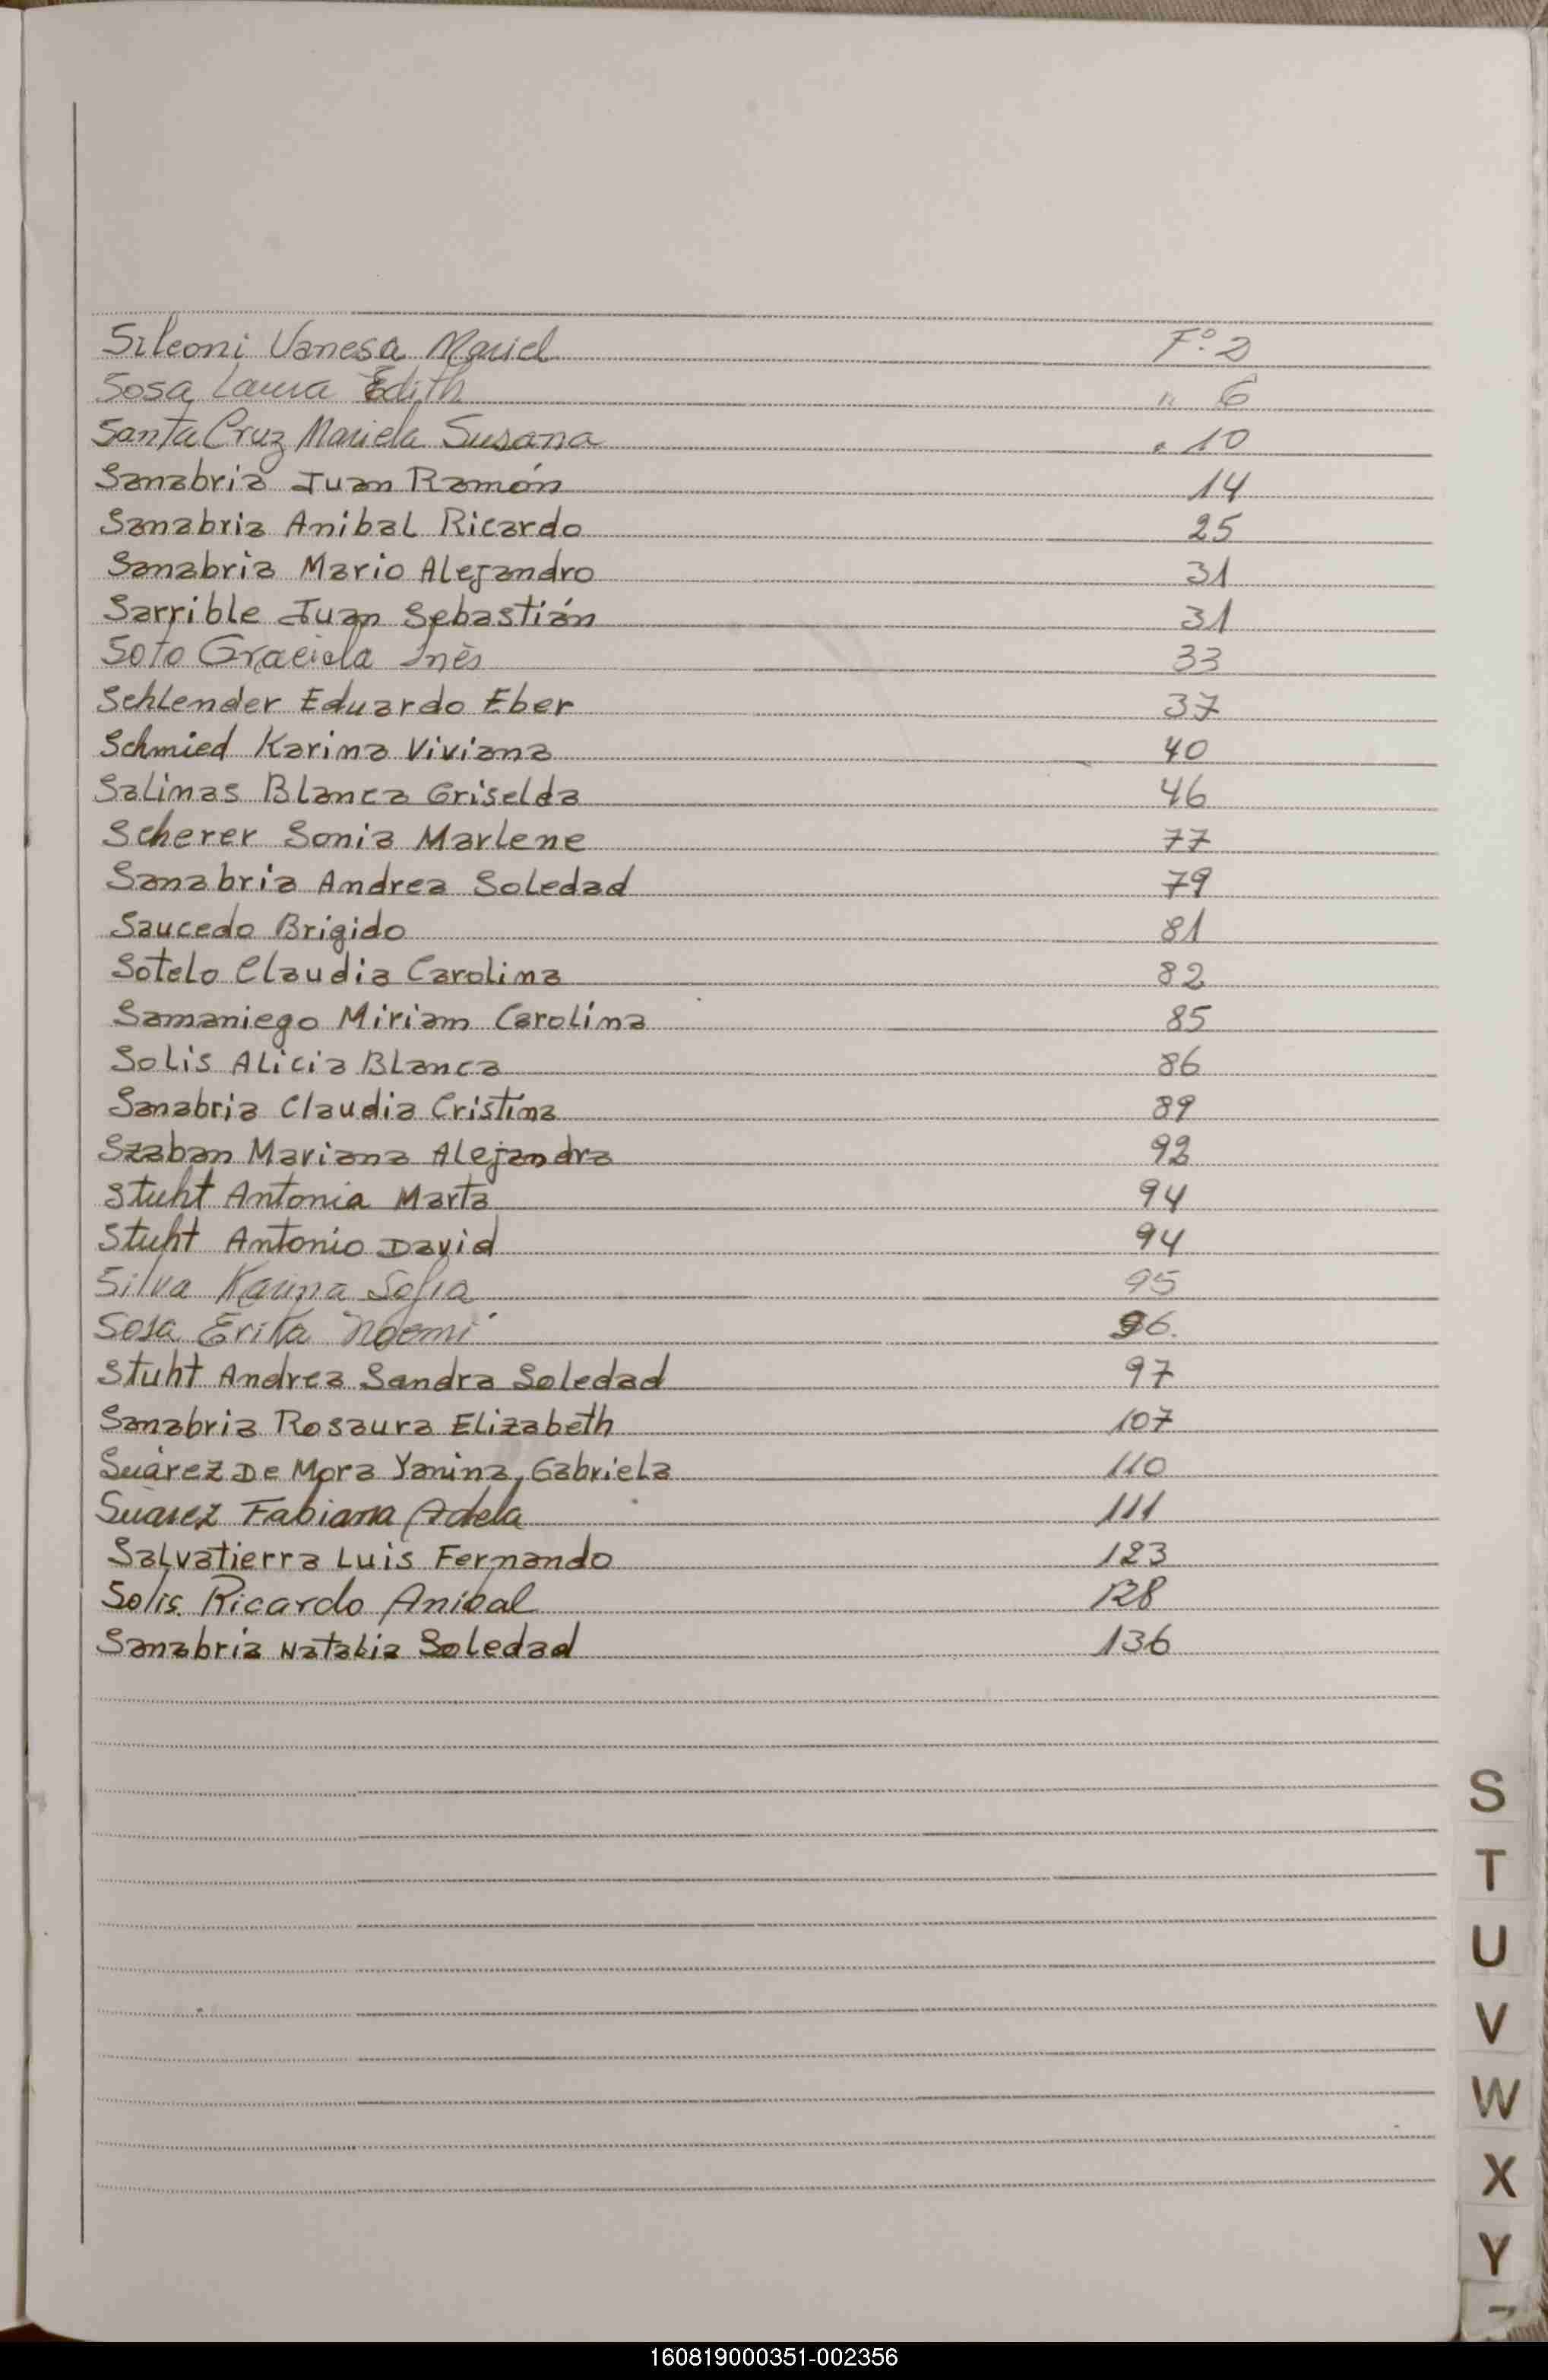 Sileoni Vanesa Mariel F.º 2
Sosa Laura Edith " 6
Santa Cruz Mariela Susana " 10
Sanabria Juan Ramón 14
Sanabria Anibal Ricardo 25
Sanabria Mario Alejandro 31
Sarrible Juan Sebastián 31
Soto Graciela Inés 33
Schlender Eduardo Eber 37
Schmied Karina Viviana 40
Salinas Blanca Griselda 46
Scherer Sonia Marlene 77
Sanabria Andrea Soledad 79
Saucedo Brigido 81
Sotelo Claudia Carolina 82
Samaniego Miriam Carolina 85
Solis Alicia Blanca 86
Sanabria Claudia Cristina 89
Szaban Mariana Alejandra 92
Stuht Antonia Marta 94
Stuht Antonio David 94
Silva Karina Sofia 95
Sosa Erika Noemí 96.
Stuht Andrea Sandra Soledad 97
Sanabria Rosaura Elizabeth 107
Suárez De Mora Yanina, Gabriela 110
Suárez Fabiana Adela 111
Salvatierra Luis Fernando 123
Solis Ricardo Anibal 128
Sanabria Natalia Soledad 136
S
T
U
V
W
X
Y
160819000351-002356